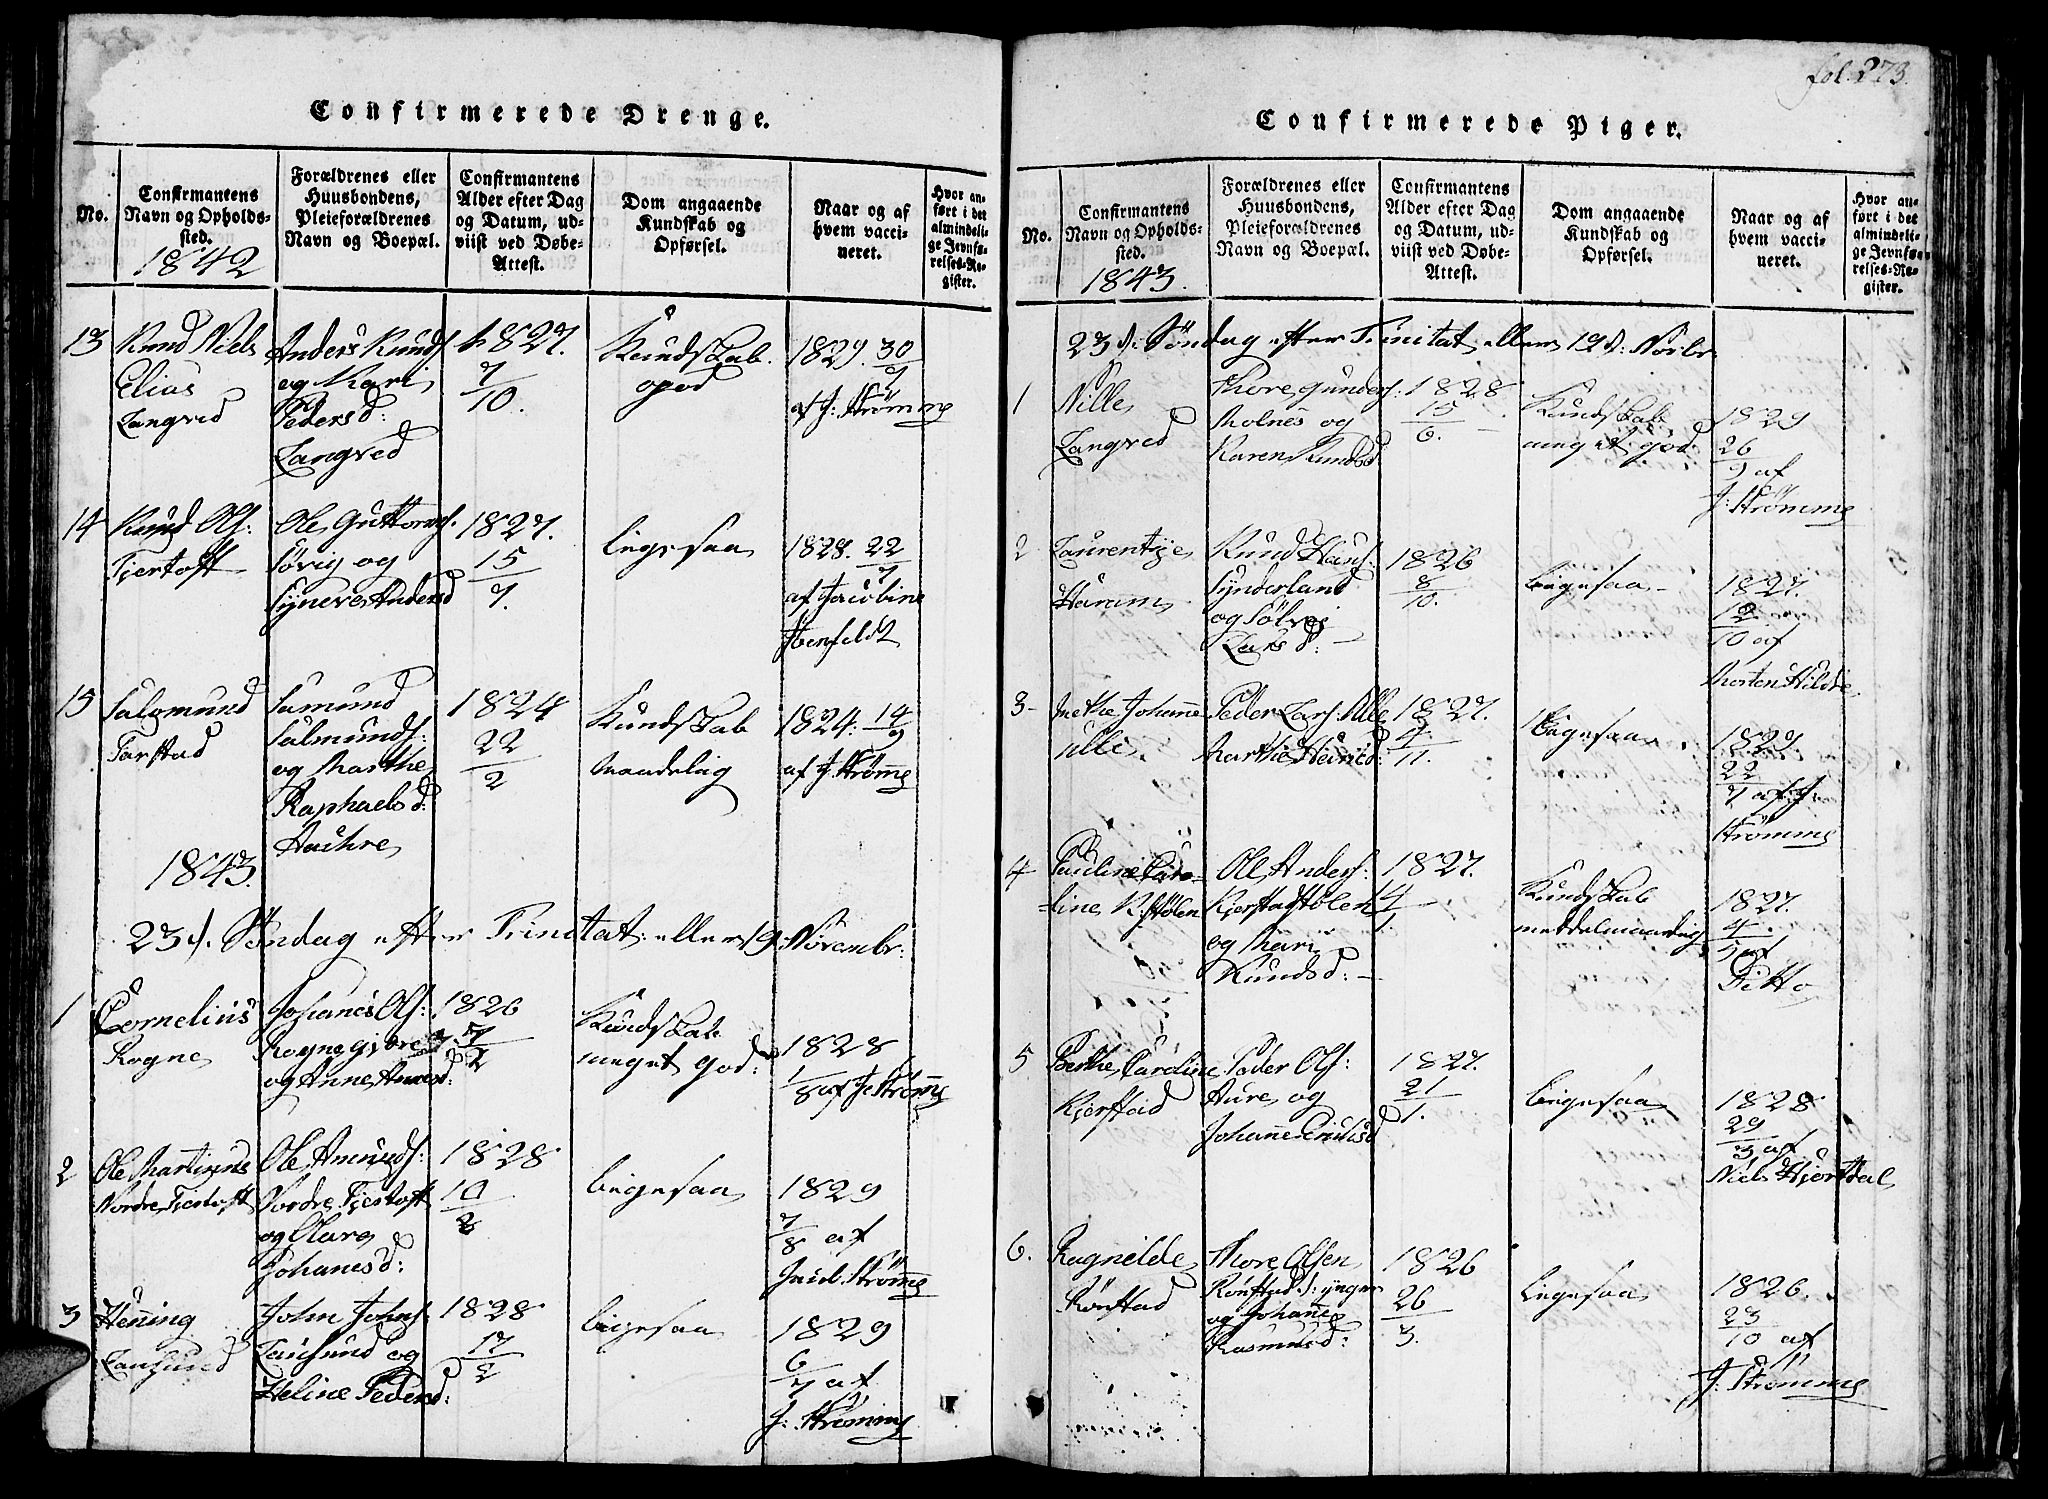 fol. 273.
Confirmerede Drenge.
No.
Confirmantens
Navn og Opholds-
sted.
1842
Forældrenes eller
Huusbondens,
Pleieforældrenes
Navn og Boepæl.
Confirmantens
Alder efter Dag
og Datum, ud-
viist ved Døbe-
Attest.
Dom angaaende
Kundskab og
Opførsel.
Naar og af
hvem vacci-
neret.
Hvor an-
ført i det
almindeli-
ge Jevnfø-
relses-Re-
gister.
13
Knud Niels
Elias
Langved
Anders Knuds:
og Kari
Peders d:
Langved
1827.
7
10.
Kundskab
god
1829. 30
7
af J: Strømme
14
Knud Ols:
Fjertoft
Ole Guttorms:
Søvig og
Syneve Anders d
1827.
15
7.
ligesaa
1828. 22
7
af Jacobine
15
Salomund
Farstad
Samund
Salmunds:
og Marthe
Raphaels d:
1824
22
2
Kundskab
maadelig
1824. 14
9
af J. Strømme
1843.
23d. Søndag efter Trinitat: eller 19: Novembr:
1
Cornelius
Rogne
Johanes Ols:
Rogne
og Anne
1826
7
2
Kundskab
meget god:
1828
1
8 af J. Strømme
2
Ole Martinus
Nordre Fjertoft
Ole Amunds:
Nordre Fjertoft
og Mare
Johanes d:
1828
10
2
ligesaa
1829
7
8 af
Jacob Strømme
3
Henning
Lausund
John Johns:
Lausund og
Heline Peders d:
1828
17
2
ligesaa
1829
6
7 af
J: Strømme
Confirmerede Piger.
No.
Confirmantens
Navn og Opholds-
sted.
1843.
Forældrenes eller
Huusbondens,
Pleieforældrenes
Navn og Boepæl.
Confirmantens
Alder efter Dag
og Datum, ud-
viist ved Døbe-
Attest.
Dom angaaende
Kundskab og
Opførsel.
Naar og af
hvem vacci-
neret.
Hvor an-
ført i det
almindeli-
ge Jevnfø-
relses-Re-
gister.
23d: Søndag efter Trinitat: eller 19d: Novbr
1
Nille
Langved
Thore Gunders:
Molnes og
Karen Knuds d
1828
15
6.
Kundskab
meget god
1829
26
9 af
J: Strømme
2
Laurentze
Haram
Knud Hans:
Synderland
og Sølvei
Lars d:
1826
8
10.
ligesaa
1827.
12
10 af
Morten Hildre
3
Methe Johanne
Ulle
Peder Lars: Ulle
1827.
4
11.
ligesaa
1829.
22
7 af J
Strømme
4
Pauline Caro-
line K:støLen
Ole Anders:
Kjerstadstølen
og Mari
Knuds d:
1827.
4
1.
Kundskab
middelmaadig
1827.
4
5 af
Ditto
5
Berthe Caroline
Kjerstad
Peder Ols:
Aure og
Johanne
1827.
21
1.
ligesaa
1828
29
3 af
Niels Hjortdal
6.
Ragnilde
Rønstad
Thore Olsen
Rønstad d: yngre
og Johanne
Rasmus d:
1826
26
3.
ligesaa
1826.
23
10 af
J: Strømme